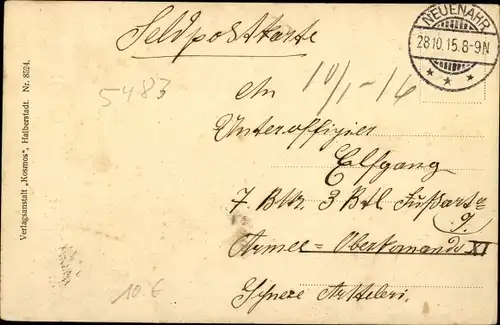 Feldpostkarte
NEUENAHR
28.10.15.8-9N
10/1-16
5483
An
Unteroffizier
Elfgang
7 Btr. 3 Btl. Fußart
9.
Armee = Oberkomando XI
Schwere Artteleri.
10 €
Verlagsanstalt „Kosmos", Halberstadt. Nr. 8524.